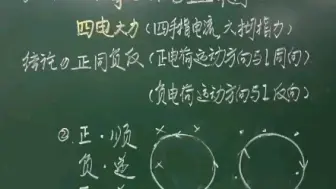 四电大力(四手指电流,大拇指力)
结论① 正同负反(正电荷运动方向与I同向)
(负电荷运动方向与I反向)
② 正·顺
负·逆